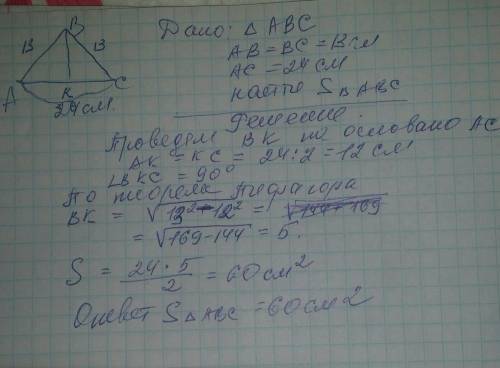 B
13 13
A K C
24 см
Дано: △ ABC
AB = BC = 13 см
AC = 24 см
найти S△ABC
Решение
Проведём BK на основано AC
AK = KC = 24:2 = 12 см
∠BKC = 90°
По теорема Пифагора
BK = √13²-12² = √144-169
= √169-144 = 5.
S = 24·5/2 = 60 см²
Ответ S△ABC = 60 см2